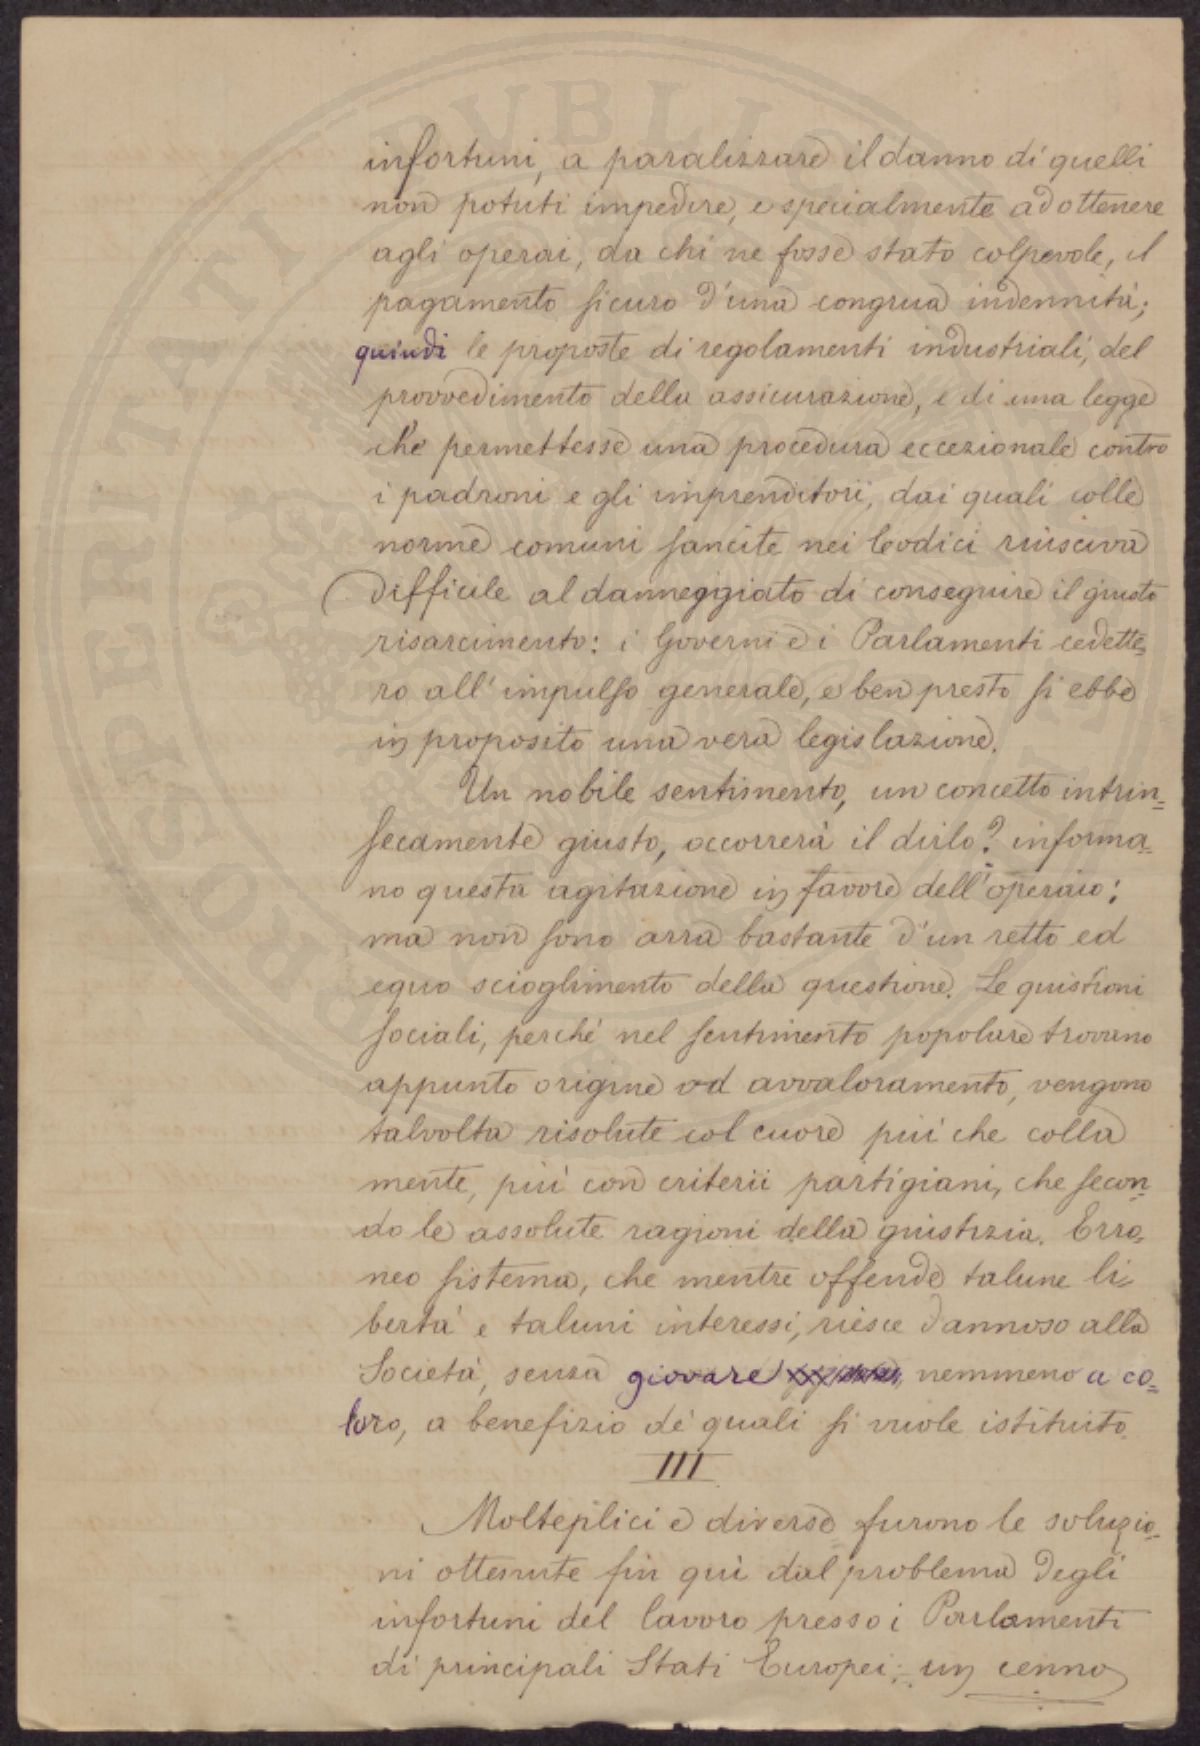 infortuni, a paralizzare il danno di quelli
non potuti impedire, e specialmente ad ottenere
agli operai, da chi ne fosse stato colpevole, il
pagamento sicuro d'una congrua indennità;
quindi le proposte di regolamenti industriali, del
provvedimento della assicurazione, e di una legge
che permettesse una procedura eccezionale contro
i padroni e gli imprenditori, dai quali colle
norme comuni sancite nei Codici riusciva
difficile al danneggiato di conseguire il giusto
risarcimento: i Governi e i Parlamenti cedette=
ro all'impulso generale, e ben presto si ebbe
in proposito una vera legislazione.
Un nobile sentimento, un concetto intrin=
secamente giusto, occorrerà il dirlo? informa=
no questa agitazione in favore dell'operaio:
ma non sono arra bastante d'un retto ed
equo scioglimento della questione. Le quistioni
sociali, perchè nel sentimento popolare trovano
appunto origine od avvaloramento, vengono
talvolta risolute col cuore più che colla
mente, più con criterii partigiani, che secon=
do le assolute ragioni della giustizia. Erro=
neo sistema, che mentre offende talune li=
bertà e taluni interessi, riesce dannoso alla
Società, senza giovare nemmeno a co=
loro, a benefizio de' quali si vuole istituito.
III
Molteplici e diverse furono le soluzio=
ni ottenute fin quì dal problema degli
infortuni del lavoro presso i Parlamenti
di principali Stati Europei; un cenno
PROSPERITATI PUBLICAE